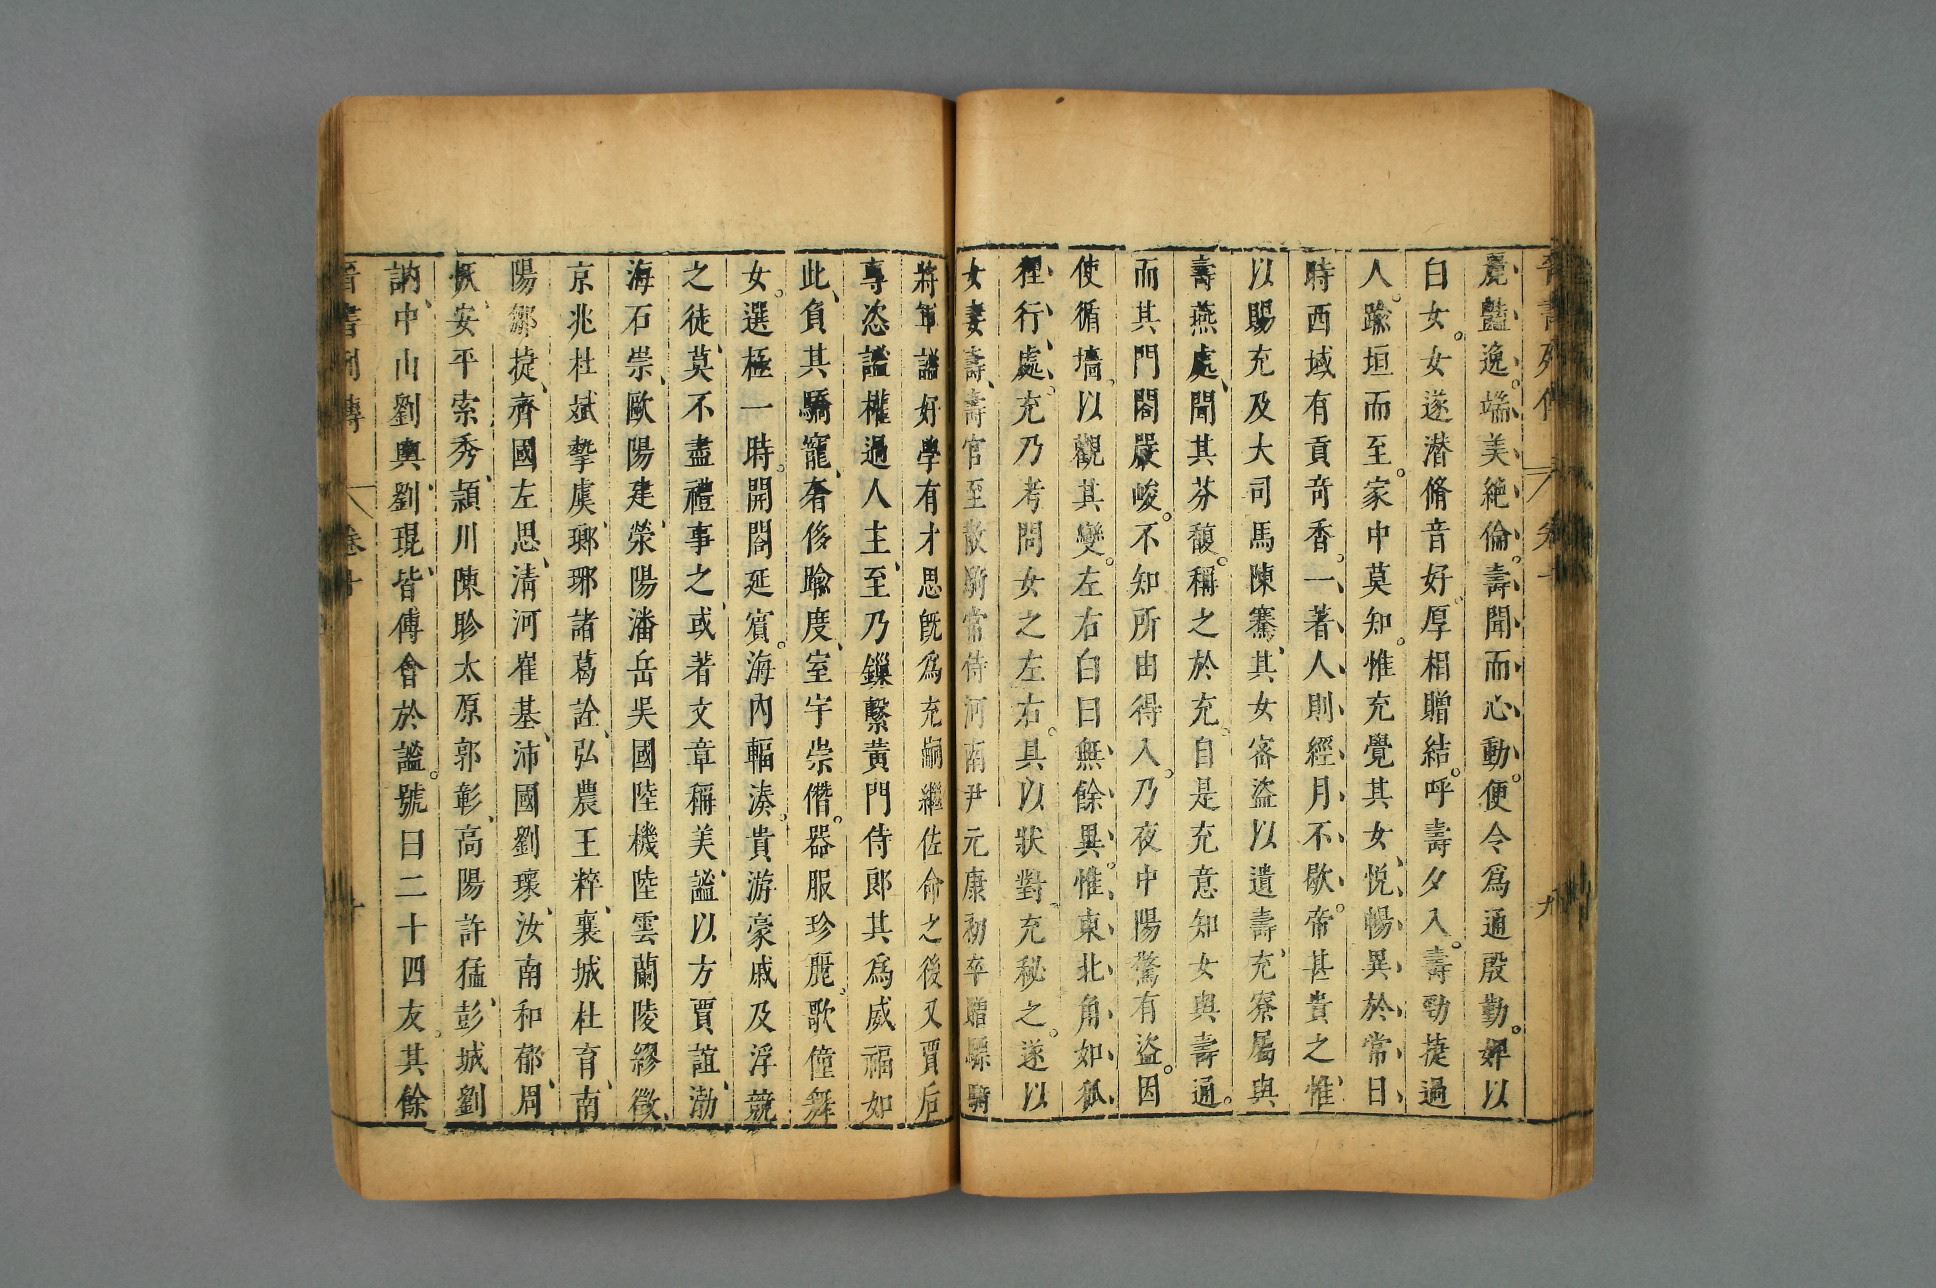 晉書列傳 卷十 九
麗豔逸端美絕倫壽聞而心動便令爲通殷勤婢以
白女女遂潛脩音好厚相贈結呼壽夕入壽勁捷過
人踰垣而至家中莫知惟充覺其女悅暢異於常日
時西域有貢奇香一著人則經月不歇帝甚貴之惟
以賜充及大司馬陳騫其女密盜以遺壽充寮屬與
壽燕處聞其芬馥稱之於充自是充意知女與壽通
而其門閤嚴峻不知所由得入乃夜中陽驚有盜因
使循墻以觀其變左右白曰無餘異惟東北角如狐
狸行處充乃考問女之左右具以狀對充秘之遂以
女妻壽壽官至散騎常侍河南尹元康初卒贈驃騎
將軍謐好學有才思旣爲充嗣繼佐命之後又賈后
專恣謐權過人主至乃鏁繫黃門侍郎其爲威福如
此負其驕寵奢侈踰度室宇崇僭器服珍麗歌僮舞
女選極一時開閤延賓海內輻湊貴游豪戚及浮競
之徒莫不盡禮事之或著文章稱美謐以方賈誼渤
海石崇歐陽建滎陽潘岳吳國陸機陸雲蘭陵繆徵
京兆杜斌摯虞瑯琊諸葛詮弘農王粹襄城杜育南
陽鄒捷齊國左思清河崔基沛國劉瓌汝南和郁周
恢安平索秀潁川陳眕太原郭彰高陽許猛彭城劉
訥中山劉輿劉琨皆傅會於謐號曰二十四友其餘
晉書列傳 卷十 十